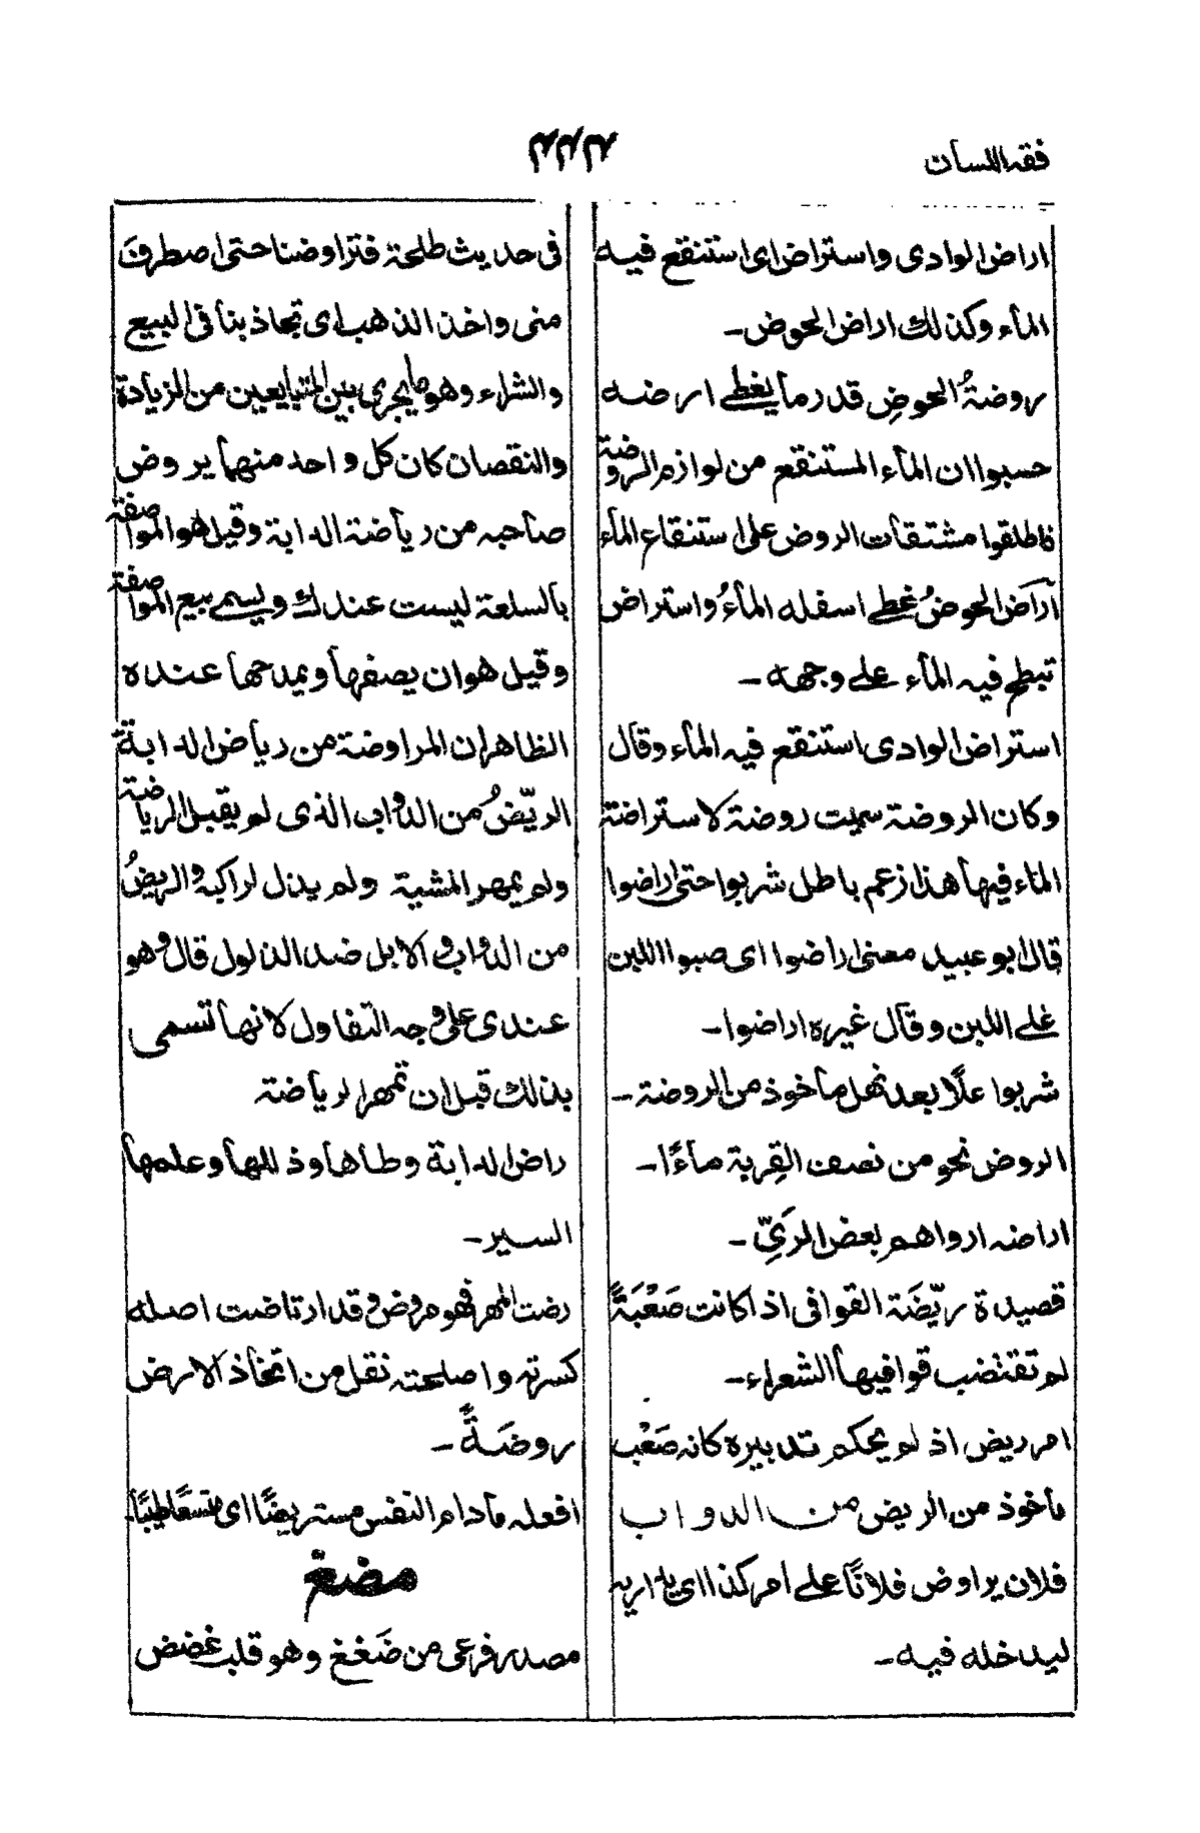 فقه اللسان
۴۴۴
اراض الوادى واستراض اى استنقع فيه
الماء وكذلك اراض الحوض۔
روضةُ الحوضِ قدر ما يغطى ارضه
حسبوا ان الماء المستنقع من لوازم الروضة
فاطلقوا مشتقات الروض على استنقاع الماء
اَراَض الحوضُ غطى اسفله الماءُ واستراض
تبطح فيه الماء على وجهه۔
استراض الوادى استنقع فيه الماء وقال
وكان الروضة سميت روضة لاستراضة
الماء فيها هذا زعم باطل شربوا حتى اراضوا
قال ابو عبيد معنى اراضوا اى صبوا اللبن
على اللبن وقال غيره اراضوا۔
شربوا علًا بعد نهل ماخوذ من الروضة۔
الروض نحو من نصف القِربة ماءًا۔
اراضه ارواهم بعض الرَيّ۔
قصيدة ريّضَة القوافى اذا كانت صَعْبَةً
لم تقتضب قوافيها الشعراء۔
امر ريض اذ لم يحكم تدبيره كانه صَعْب
ماخوذ من الريض من الدواب
فلان يراوض فلانًا على امر كذا اى يداريه
ليدخله فيه۔
فى حديث طلحة فتراوضنا حتى اصطرفَ
منى واخذ الذهب اى تجاذبنا فى البيع
والشراء وهو ما يجرى بين المتبايعين من الزيادة
والنقصان كان كل واحد منهما يروض
صاحبه من رياضة الدابة وقيل هو المواصفة
بالسلعة ليست عندك ويسمى بيع المواصفة
وقيل هو ان يصفها ويمدحها عنده
الظاهر ان المراوضة من رياض الدابة
الريّضُ من الدواب الذى لم يقبل الرياضة
ولم يمهر المشية ولم يذل لراكبه والريضُ
من الدواب والابل ضد الذلول قال وهو
عندى على وجه التفاول لانها تسمى
بذلك قبل ان تمهر الرياضة
راض الدابة وطاها وذللها وعلمها
السير۔
رضت المهر فهو مروض وقد ارتاضت اصله
كسرته واصلحته نقل من اتخاذ الارض
روضَةً۔
افعله مادام النفس مستريضًا اى متسعًا طيبًا۔
مضغ
مصدر فرعى من ضَغغ وهو قلب غضض